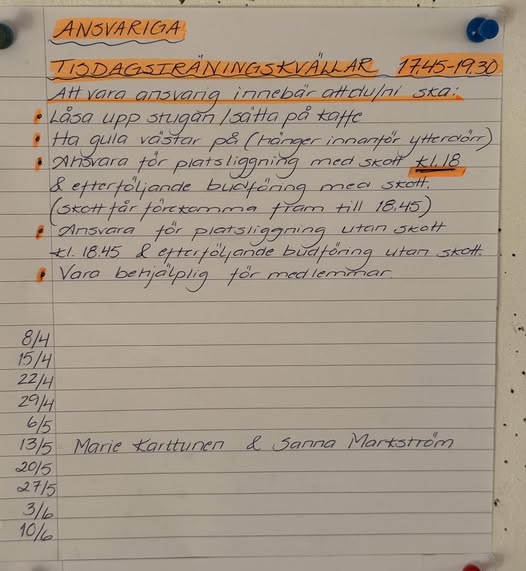 ANSVARIGA
TISDAGSTRÄNINGSKVÄLLAR 17.45-19.30
Att vara ansvarig innebär att du/ni ska:
• Låsa upp stugan / sätta på kaffe
• Ha gula västar på (hänger innanför ytterdörr)
• Ansvara för platsliggning med skott kl. 18
& efterföljande budföring med skott.
(skott får förekomma fram till 18.45)
• Ansvara för platsliggning utan skott
kl. 18.45 & efterföljande budföring utan skott.
• Vara behjälplig för medlemmar.
8/4
15/4
22/4
29/4
6/5
13/5 Marie Karttunen & Sanna Markström
20/5
27/5
3/6
10/6